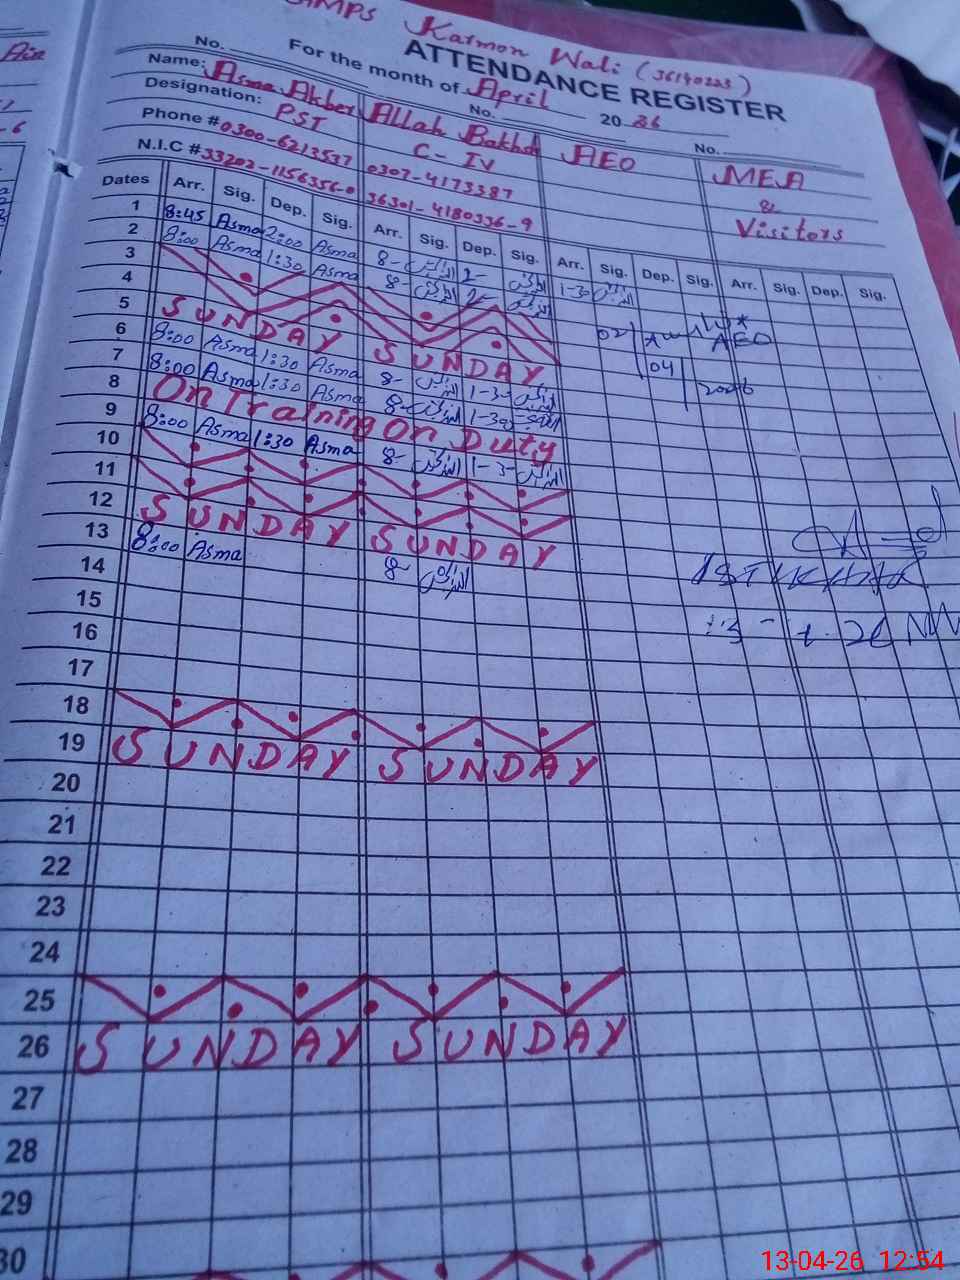 GMPS Karmon Wali (36140223)
ATTENDANCE REGISTER
For the month of April 2026
No. No. No.
Name: Asma Akber Allah Bakhsh AEO MEA
Designation: PST C-IV &
Phone # 0300-6213537 0307-4173387 Visitors
N.I.C # 33202-1156356-0 36301-4180336-9
Dates Arr. Sig. Dep. Sig. Arr. Sig. Dep. Sig. Arr. Sig. Dep. Sig. Arr. Sig. Dep. Sig.
1 8:45 Asma 2:00 Asma 8- 2-
2 8:00 Asma 1:30 Asma 8- 2- 1-30
3
4
5 SUNDAY SUNDAY
6 8:00 Asma 1:30 Asma 8- 1-3-
7 8:00 Asma 1:30 Asma 8- 1-30
8 On Training On Duty
9 8:00 Asma 1:30 Asma 8- 1-3-
10
11
12 SUNDAY SUNDAY
13 8:00 Asma 8-
AEO
02/04/2026
14
15
16
17
18
19 SUNDAY SUNDAY
20
21
22
23
24
25
26 SUNDAY SUNDAY
27
28
29
30
13-04-26 12:54